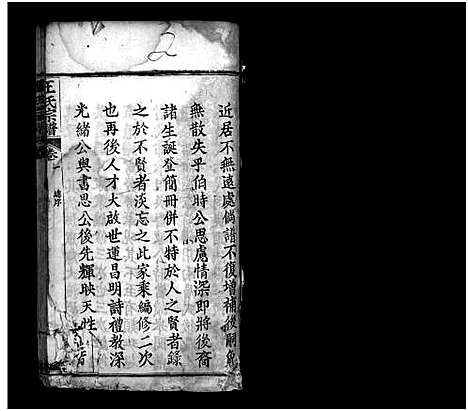 2
近居不無遠處倘譜不復增補後嗣免
無散失乎伯時公思慮情深即將後裔
諸生誕登簡冊併不特於人之賢者錄
之於不賢者淡忘之此家乘編修二次
也再後人才大啟世運昌明詩禮教深
光緒公與書思公後先輝映天性
王氏宗譜 卷一
總序